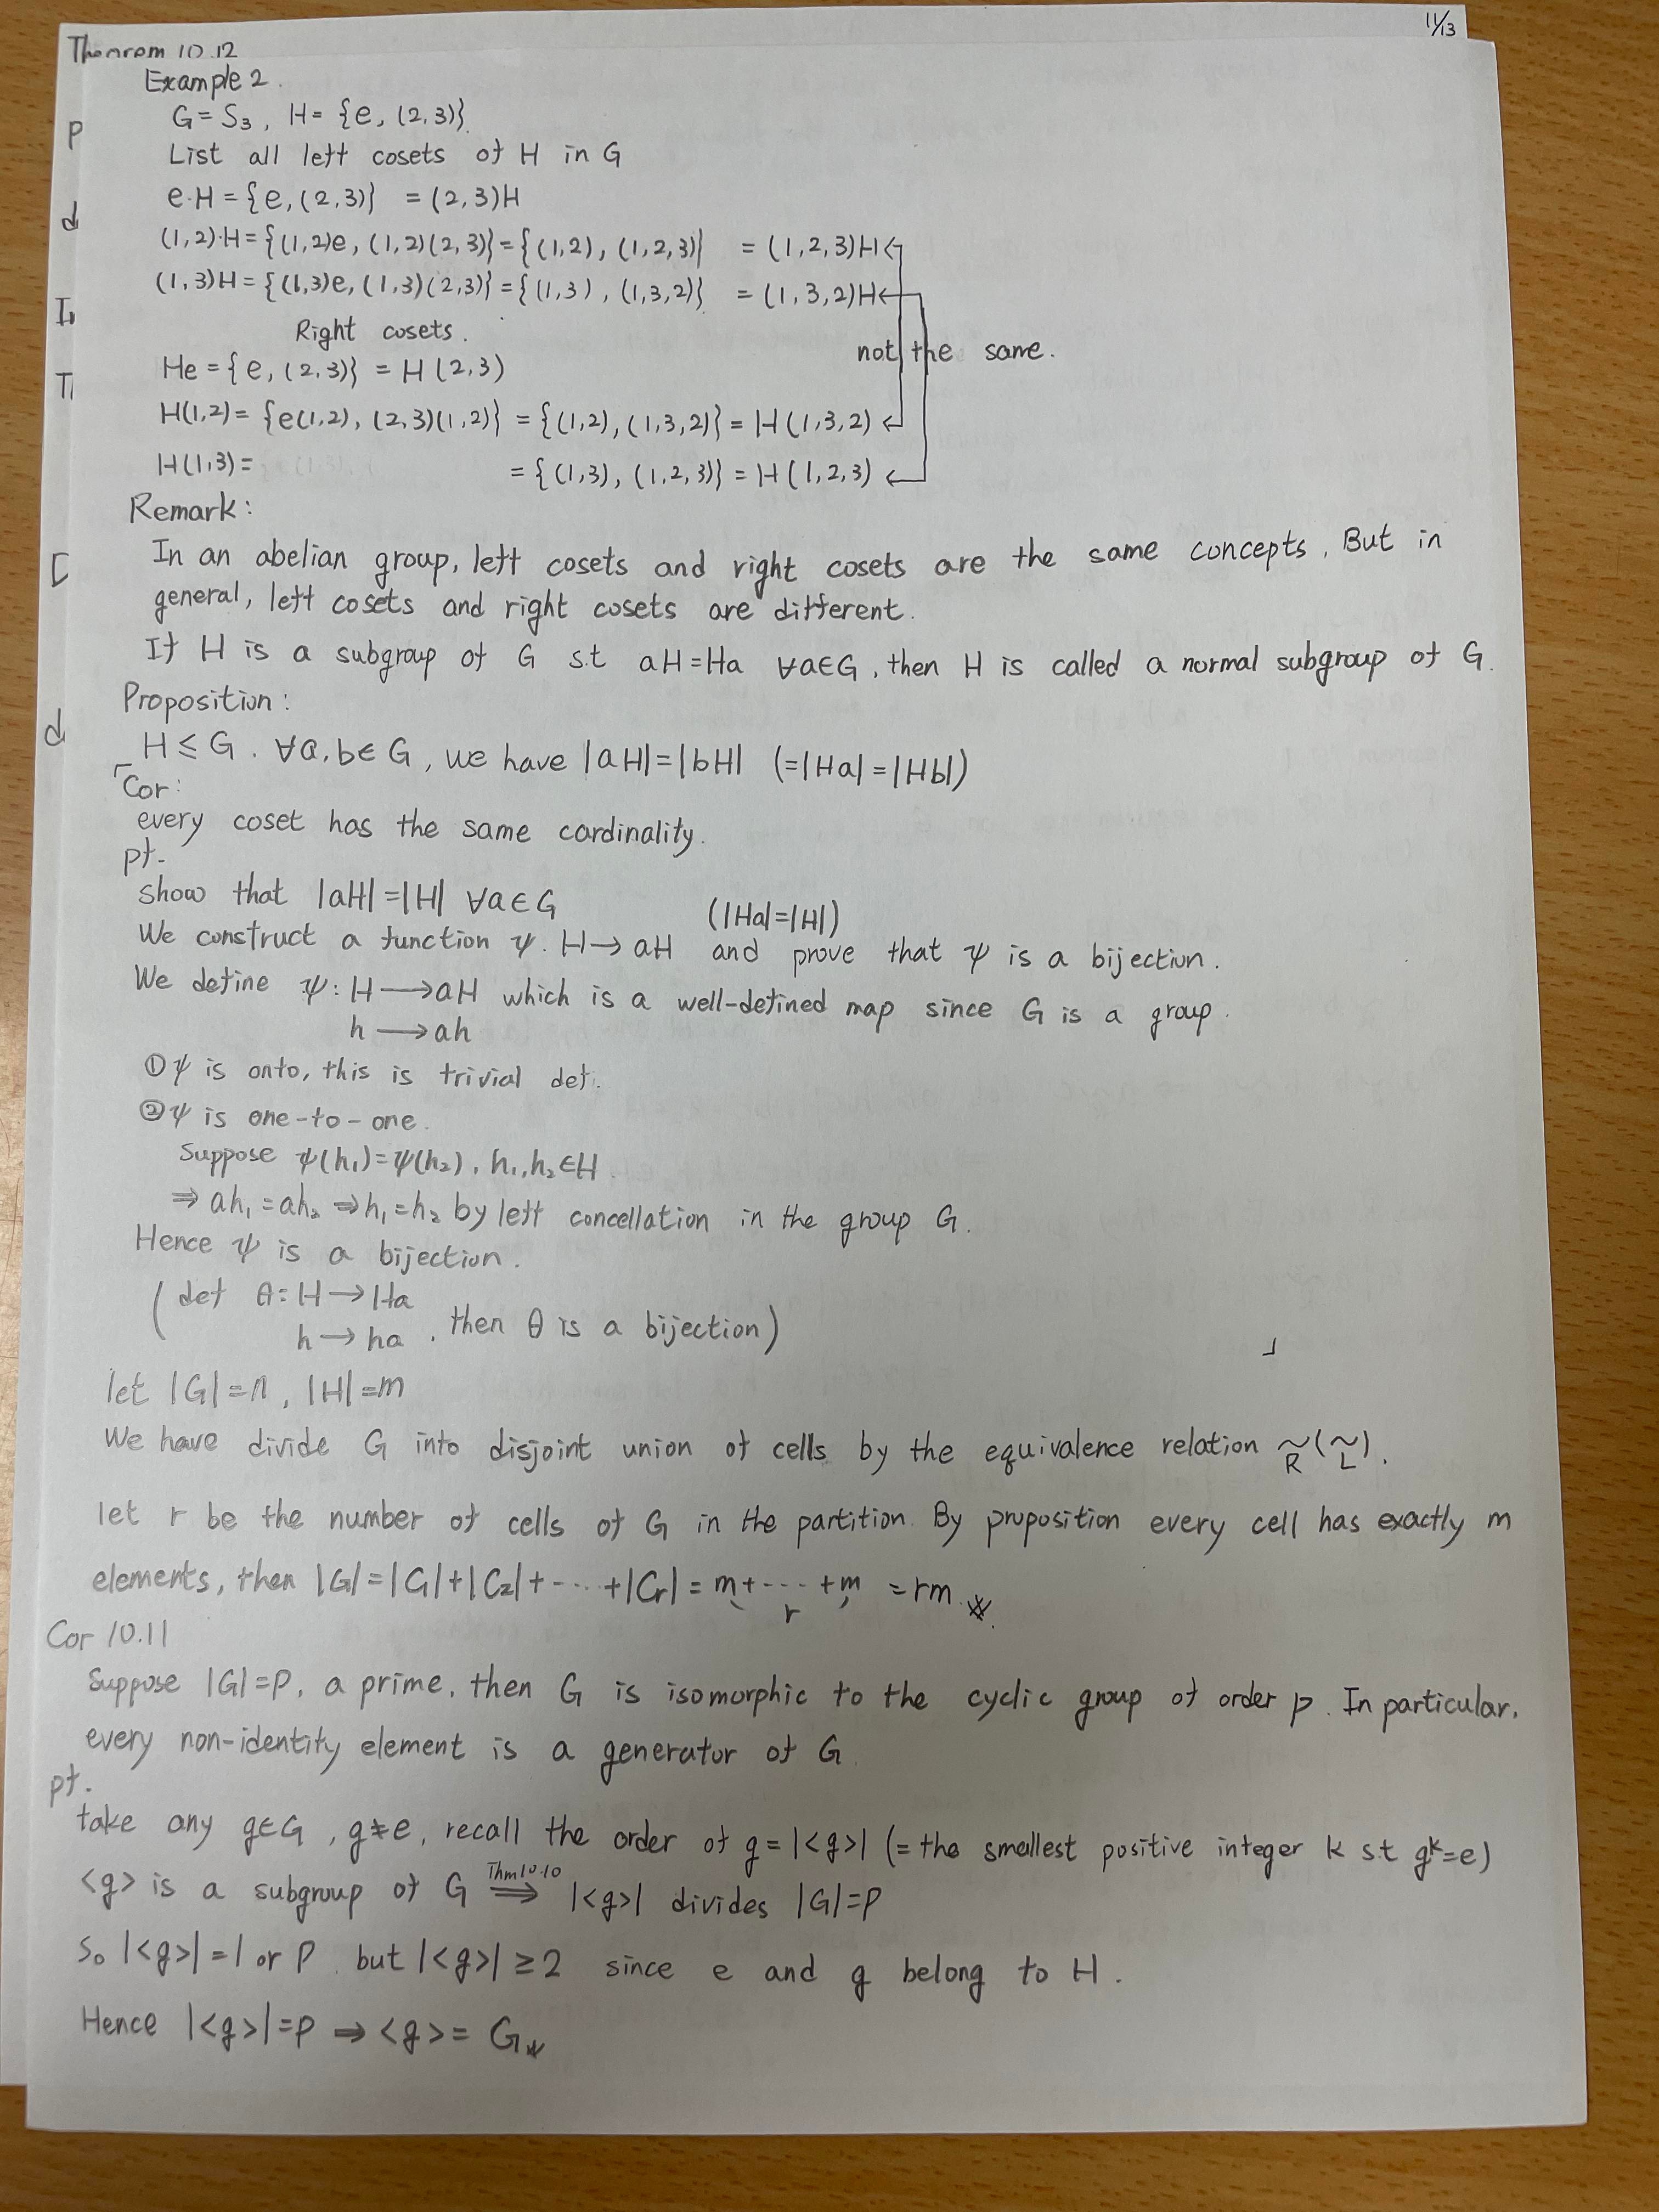 11/13
Theorem 10.12
Example 2.
G = S₃, H = {e, (2,3)}
List all left cosets of H in G
e·H = {e, (2,3)} = (2,3)H
(1,2)·H = {(1,2)e, (1,2)(2,3)} = {(1,2), (1,2,3)} = (1,2,3)H
(1,3)H = {(1,3)e, (1,3)(2,3)} = {(1,3), (1,3,2)} = (1,3,2)H
Right cosets.
not the same.
He = {e, (2,3)} = H(2,3)
H(1,2) = {e(1,2), (2,3)(1,2)} = {(1,2), (1,3,2)} = H(1,3,2)
H(1,3) = = {(1,3), (1,2,3)} = H(1,2,3)
Remark:
In an abelian group, left cosets and right cosets are the same concepts. But in
general, left cosets and right cosets are different.
If H is a subgroup of G s.t aH=Ha ∀a∈G, then H is called a normal subgroup of G.
Proposition:
H ≤ G. ∀a,b∈G, we have |aH|=|bH| (=|Ha|=|Hb|)
Cor:
every coset has the same cardinality.
pf.
show that |aH|=|H| ∀a∈G (|Ha|=|H|)
We construct a function ψ: H→aH and prove that ψ is a bijection.
We define ψ: H⟶aH which is a well-defined map since G is a group.
h⟶ah
① ψ is onto, this is trivial def.
② ψ is one-to-one.
Suppose ψ(h₁)=ψ(h₂), h₁,h₂∈H
⇒ ah₁=ah₂ ⇒ h₁=h₂ by left concellation in the group G.
Hence ψ is a bijection.
(def θ: H→Ha
h→ha, then θ is a bijection)
let |G|=n, |H|=m
We have divide G into disjoint union of cells by the equivalence relation ~R (~L).
let r be the number of cells of G in the partition. By proposition every cell has exactly m
elements, then |G|=|C₁|+|C₂|+···+|Cr|= m+···+m =rm.
r
Cor 10.11
Suppose |G|=p, a prime, then G is isomorphic to the cyclic group of order p. In particular,
every non-identity element is a generator of G.
pf.
take any g∈G, g≠e, recall the order of g=|<g>| (= the smallest positive integer k s.t gᵏ=e)
<g> is a subgroup of G ⇒ (Thm 10.10) |<g>| divides |G|=p
So |<g>|=1 or p. but |<g>|≥2 since e and g belong to H.
Hence |<g>|=p ⇒ <g>= G